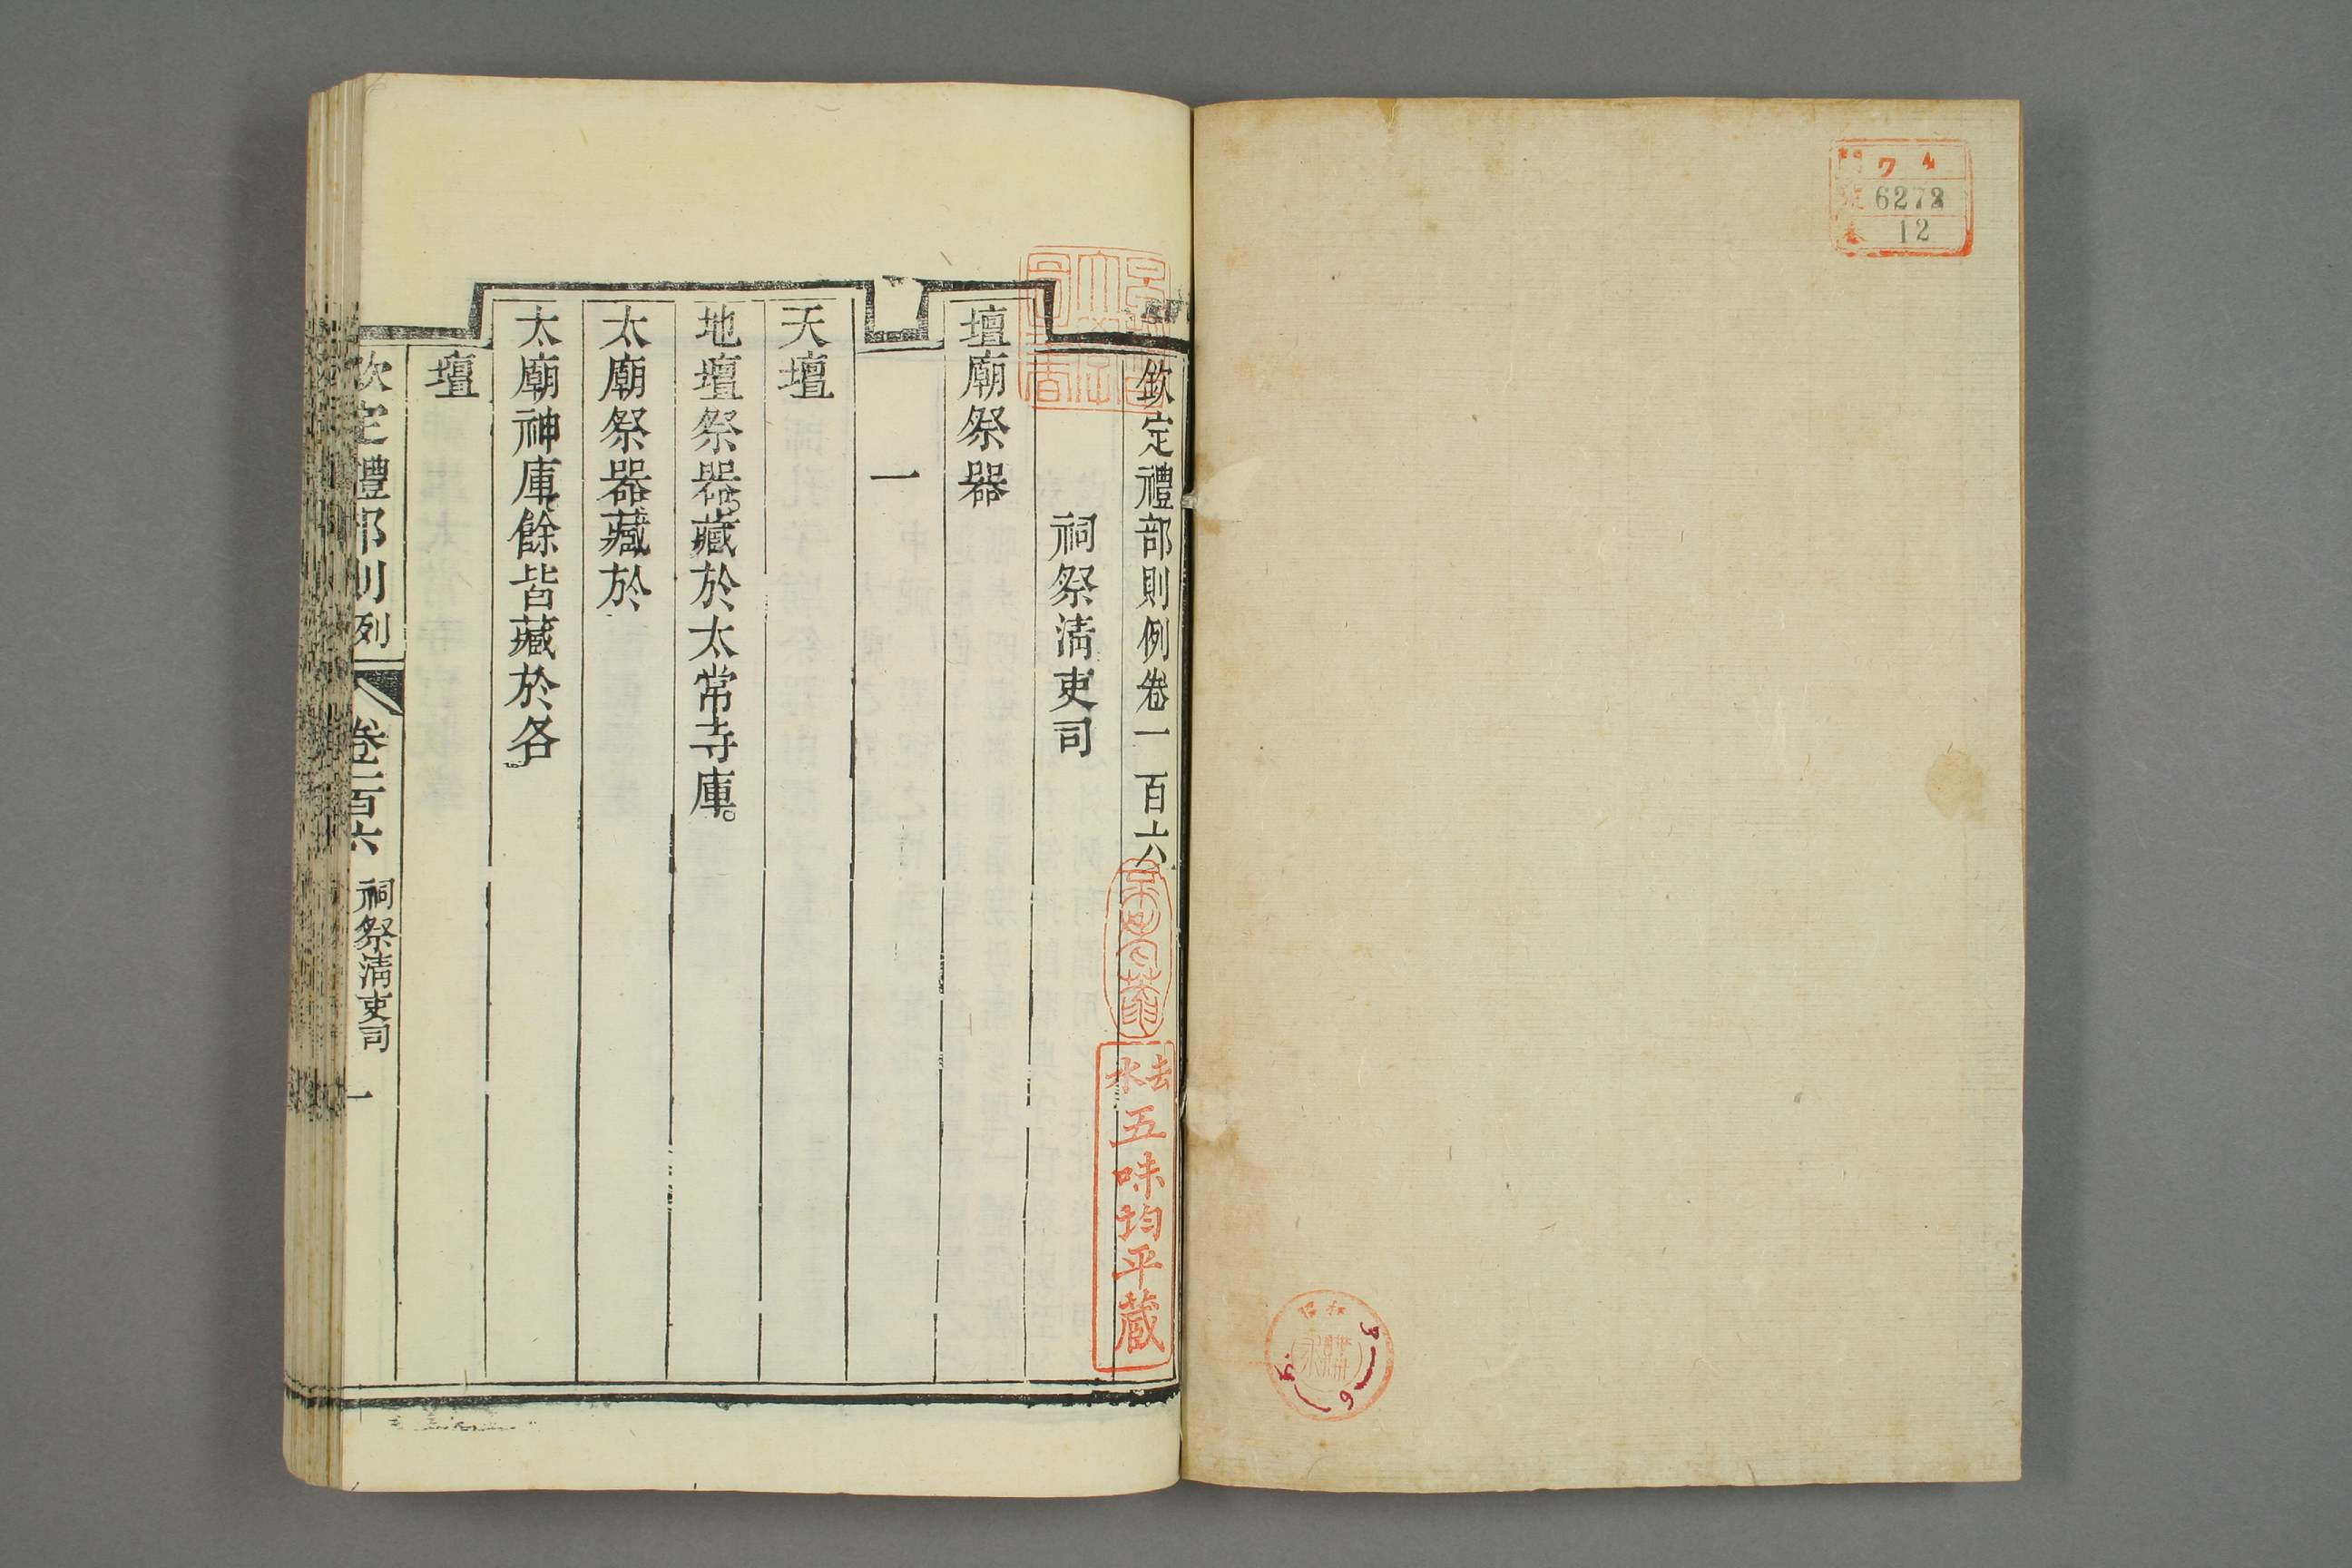 6272
12
欽定禮部則例卷一百六
祠祭清吏司
壇廟祭器
一
天壇
地壇祭器藏於太常寺庫。
太廟祭器藏於
太廟神庫餘皆藏於各
壇
欽定禮部則例
卷一百六
祠祭清吏司
一
五味均平蔵
昭和
購求